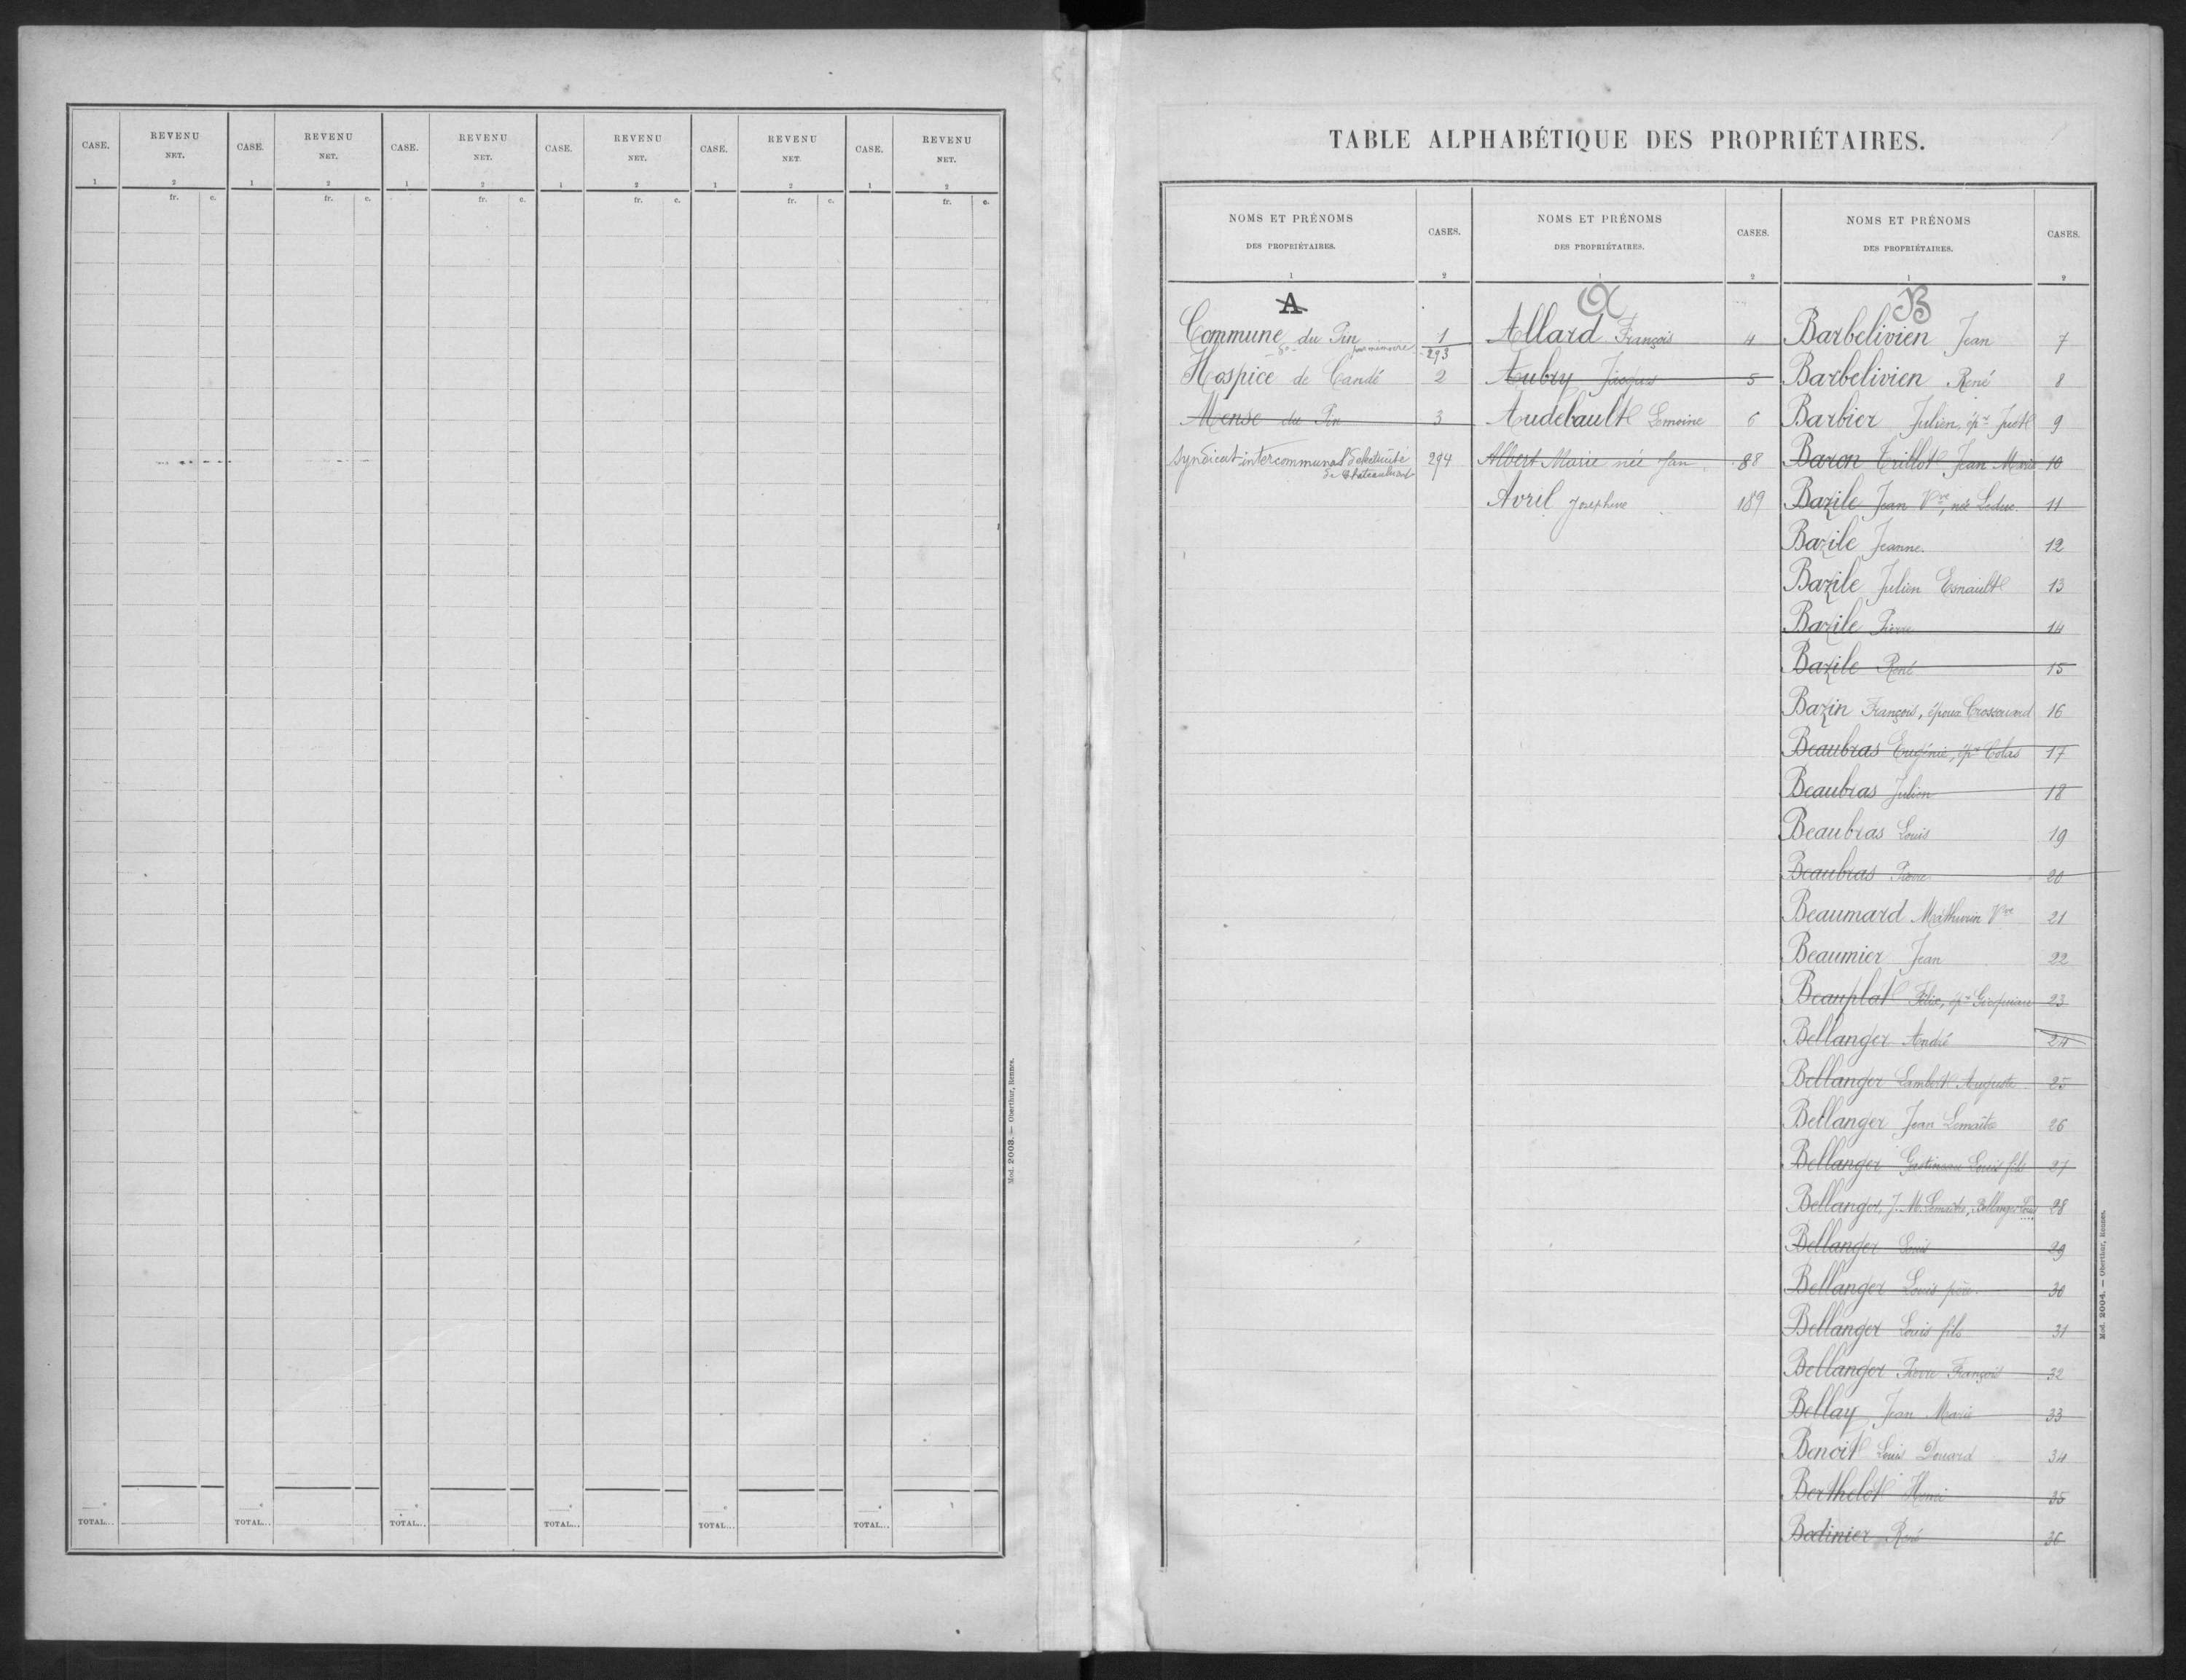 CASE. REVENU NET. CASE. REVENU NET. CASE. REVENU NET. CASE. REVENU NET. CASE. REVENU NET. CASE. REVENU NET.
1 2 1 2 1 2 1 2 1 2 1 2
fr. c. fr. c. fr. c. fr. c. fr. c. fr. c.
TOTAL... TOTAL... TOTAL... TOTAL... TOTAL... TOTAL...
Mod. 2003. — Oberthur, Rennes.
TABLE ALPHABÉTIQUE DES PROPRIÉTAIRES.
NOMS ET PRÉNOMS DES PROPRIÉTAIRES. CASES. NOMS ET PRÉNOMS DES PROPRIÉTAIRES. CASES. NOMS ET PRÉNOMS DES PROPRIÉTAIRES. CASES.
1 2 1 2 1 2
A
Commune du Pin 1
- do - pour mémoire 293
Hospice de Candé 2
Mense du Pin 3
Syndicat intercommunal d'électricité 294
de Chateaubriant
A
Allard François 4
Aubry Jacques 5
Audebault Lemoine 6
Albert Marie née Jan 88
Avril Joséphine 189
B
Barbelivien Jean 7
Barbelivien René 8
Barbier Julien, épx Juet 9
Baron Trillot Jean Marie 10
Bazile Jean Vve, née Leduc 11
Bazile Jeanne. 12
Bazile Julien Esnault 13
Bazile Pierre 14
Bazile René 15
Bazin François, époux Crossouard 16
Beaubras Eugénie, épse Colas 17
Beaubras Julien 18
Beaubras Louis 19
Beaubras Pierre 20
Beaumard Mathurin Vve 21
Beaumier Jean 22
Beauplat Félix, épx 23
Bellanger André 24
Bellanger Lambert Auguste 25
Bellanger Jean Lemaître 26
Bellanger Gastineau Louis fils 27
Bellanger, J. M. Lemaître, Bellanger Louis 28
Bellanger Louis 29
Bellanger Louis père. 30
Bellanger Louis fils 31
Bellanger Pierre François 32
Bellay Jean Marie 33
Benoit Louis Douard 34
Berthelot Henri 35
Bodinier René 36
Mod. 2004. — Oberthur, Rennes.